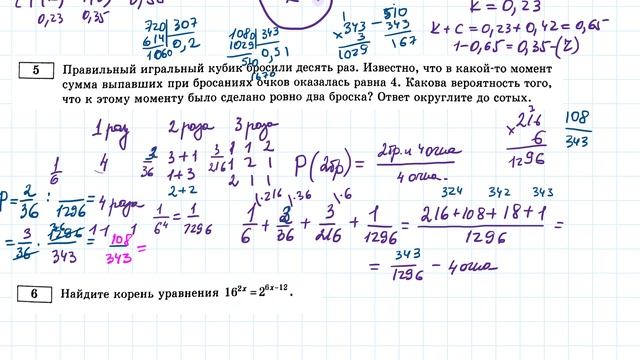 K = 0,23
0,23 0,35
720 307
614 0,2
1060
1080 343
1029 0,31
510
1670
343
3
1029
510
343
167
K + C = 0,23 + 0,42 = 0,65
1-0,65 = 0,35-(2)
5 Правильный игральный кубик бросили десять раз. Известно, что в какой-то момент
сумма выпавших при бросаниях очков оказалась равна 4. Какова вероятность того,
что к этому моменту было сделано ровно два броска? Ответ округлите до сотых.
1 раз 2 раза 3 раза
1/6 4
3/36 3+1
1+3
2+2
3/216 1 1 2
1 2 1
2 1 1
P(2бр) = 2бр. и 4очка / 4 очка.
216
6
1296
108/343
324 342 343
4 раза
1 1 1 1
1/6^4 = 1/1296
1/6 + 3/36 + 3/216 + 1/1296 = 216+108+18+1 / 1296 =
\.216 \.36 \.6
P = 2/36 : /1296 =
= 3/36 · 1296/343 = 108/343 =
= 343/1296 - 4очка
6 Найдите корень уравнения 16^2x = 2^6x-12.